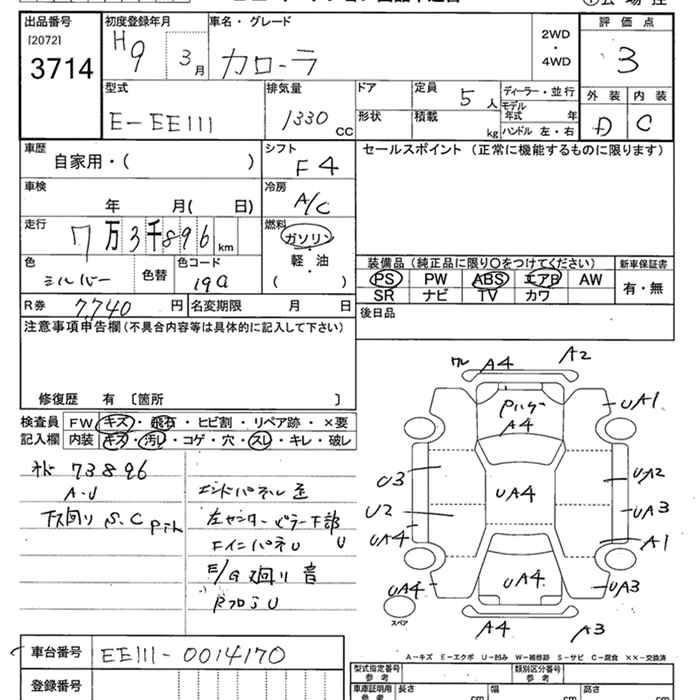 出品番号 初度登録年月 車名・グレード 2WD・4WD 評価点
[2072] H9 3月 カローラ 3
3714
型式 排気量 ドア 定員 5人 ディーラー・並行 外装 内装
E-EE111 1330 CC 形状 積載 kg モデル年式 年 D C
ハンドル 左・右
車歴 シフト セールスポイント (正常に機能するものに限ります)
自家用・( ) F4
車検 冷房
年 月( 日) A/C
走行 燃料
7万3千896km ガソリン・軽油・( )
装備品 (純正品に限り○をつけてください) 新車保証書
色 色替 色コード PS PW ABS エアB AW 有・無
シルバー 199 SR ナビ TV カワ
R券 7,740円 名変期限 月 日 後日品
注意事項申告欄 (不具合内容等は具体的に記入して下さい)
修復歴 有 〔箇所 〕
検査員 FW キズ・飛石・ヒビ割・リペア跡・×要
記入欄 内装 キズ・汚レ・コゲ・穴・スレ・キレ・破レ
73896
A-U エンドパネル歪
下回り S.C 左センターピラー下部
FインパネU U
E/G廻り音
ワレ A4 A2
A4 UA1
U3 UA4 UA2
U2 UA3
UA4 A1
UA4 UA4 UA3
スペア A4 A3
A-キズ E-エクボ U-凹み W-補修跡 S-サビ C-腐食 ××-交換済
車台番号 EE111-0014170 型式指定番号 参考 類別区分番号 参考
登録番号 車庫証明用 参考 長さ cm 幅 cm 高さ cm